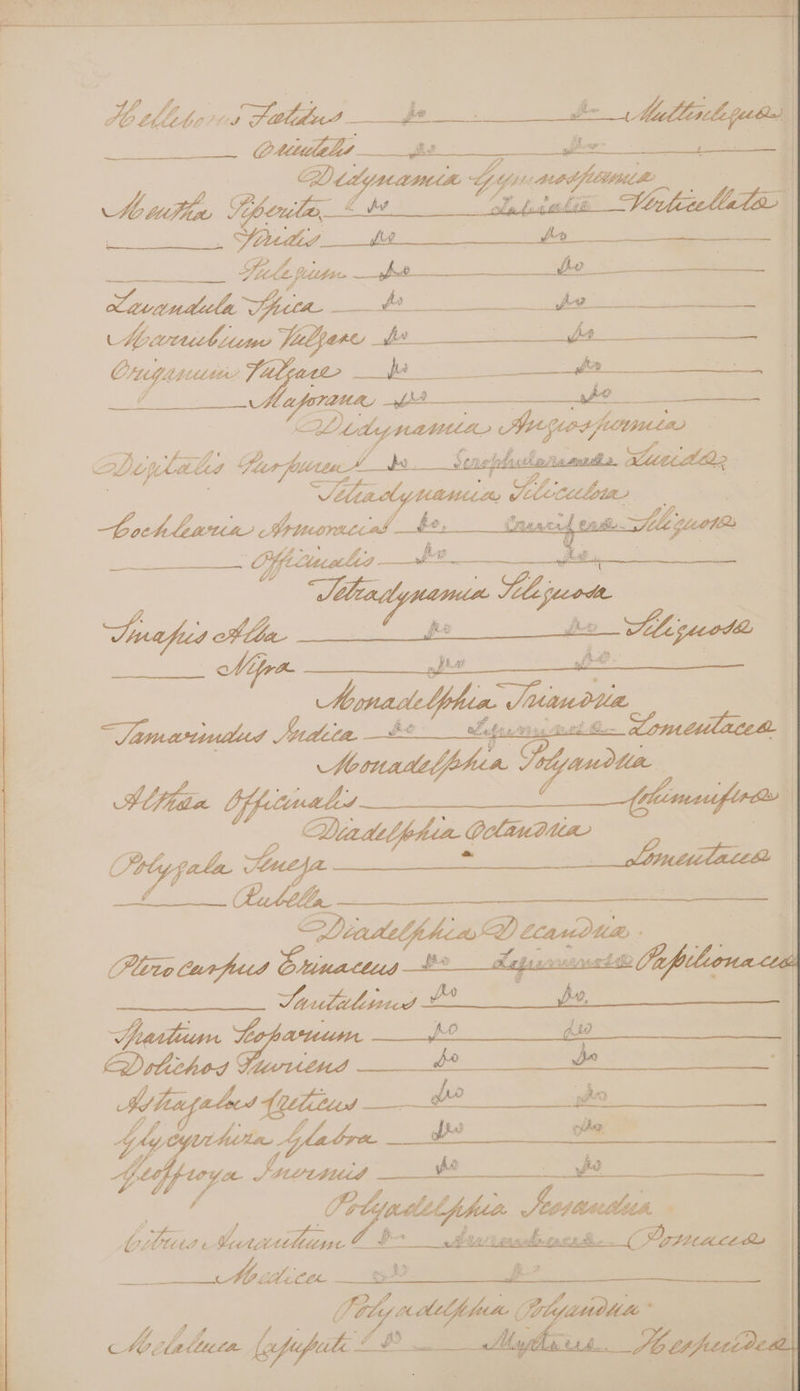 Helleborus Fœtidus do do Multisiliquæ
Orientalis do do
Didynamia Gymnospermia
Mentha Piperita do Labiatæ Verticellatæ
Viridis do do
Pulegium do do
Lavandula Spica do do
Marrubium Vulgare do do
Origanum Vulgare do do
Majorana do do
Didynamia Angiospermia
Digitalis Purpurea do Scrophularineæ Luridæ
Tetradynamia Siliculosa
Cochlearia Armoracia do Cruciferæ Siliquosæ
Officinalis do do
Tetradynamia Siliquosa
Sinapis Alba do do Siliquosæ
Nigra do do
Monadelphia Triandria
Tamarindus Indica do Leguminosæ Lomentaceæ
Monadelphia Polyandria
Althæa Officinalis Columniferæ
Diadelphia Octandria
Polygala Senega Lomentaceæ
Rubella
Diadelphia Decandria
Pterocarpus Erinaceus do Leguminosæ Papilionaceæ
Santalinus do do
Spartium Scoparium do do
Dolichos Pruriens do do
Astragalus Creticus do do
Glycyrrhiza Glabra do do
Geoffroya Inermis do do
Polyadelphia Icosandria
Citrus Aurantium do Aurantiaceæ Pomaceæ
Medica do do
Polyadelphia Polyandria
Melaleuca Cajuputi do Myrtaceæ Hesperideæ